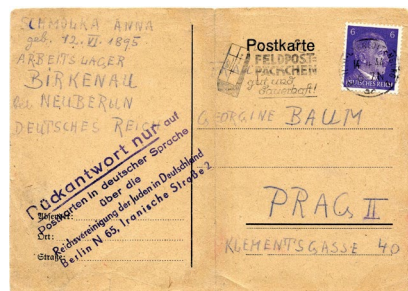 SCHMOLKA ANNA
geb. 12. VI. 1895
ARBEITSLAGER
BIRKENAU
bei NEUBERUN
DEUTSCHES REICH
Rückantwort nur auf
Postkarten in deutscher Sprache
über die
Reichsvereinigung der Juden in Deutschland
Berlin N 65, Iranische Straße 2
Absender:
Ort:
Straße:
Postkarte
FELDPOST-
PÄCKCHEN
gut und
dauerhaft!
6 6
DEUTSCHES REICH
GEORGINE BAUM
PRAG II
KLEMENTSGASSE 40